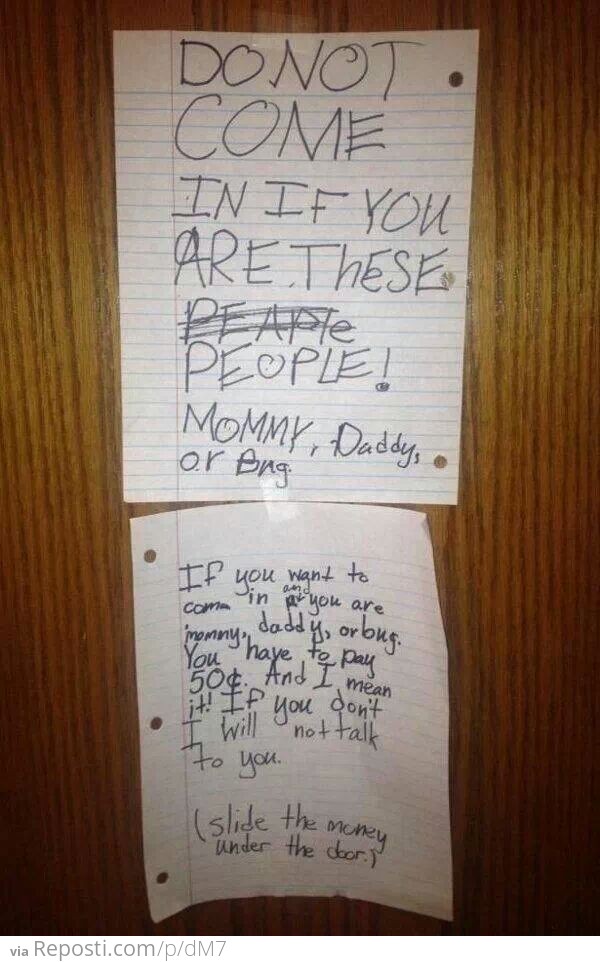 DO NOT
COME
IN IF YOU
ARE.ThESE
PEAPle
PEOPLE!
MOMMY, Daddy,
or Bug.
If you want to
come in and you are
mommy, daddy, or bug.
You have to pay
50¢. And I mean
it! If you don't
I will not talk
to you.
(slide the money
under the door.)
via Reposti.com/p/dM7